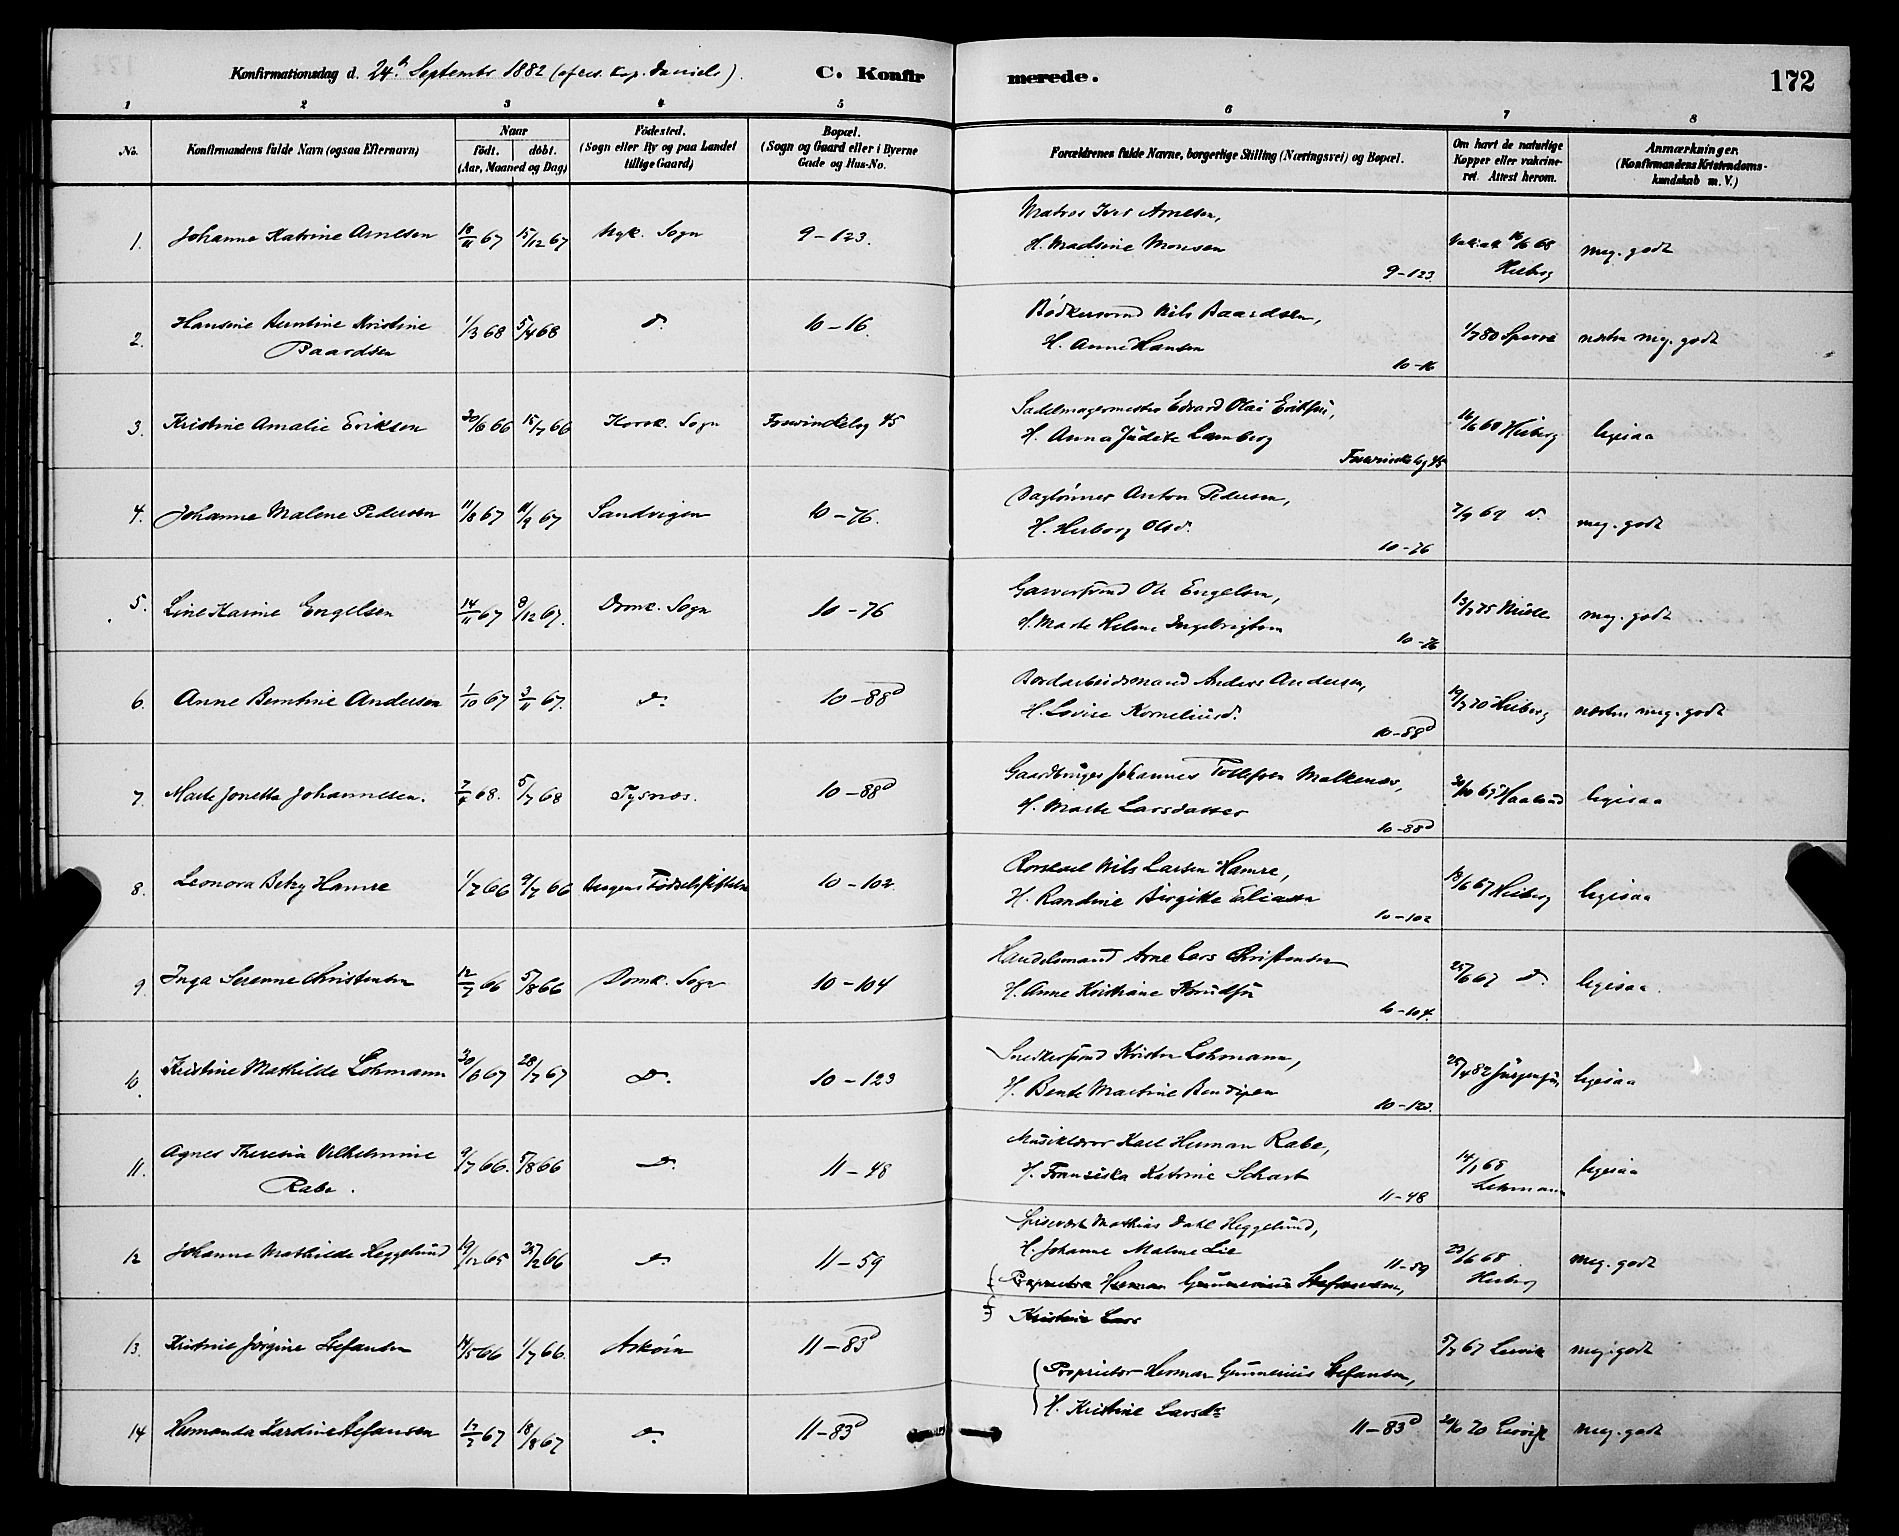 Konfirmationsdag d. 24. September 1882
C. Konfirmerede.
172
1 2 3 4 5 6 7 8
No.
Konfirmandens fulde Navn (ogsaa Efternavn)
Naar
födt. döbt.
(Aar, Maaned og Dag)
Födested.
(Sogn eller By og paa Landet
tillige Gaard)
Bopæl.
(Sogn og Gaard eller i Byerne
Gade og Hus-No.
Forældrenes fulde Navne, borgerlige Stilling (Næringsvei) og Bopæl.
Om havt de naturlige
Kopper eller vakcine-
ret. Attest herom.
Anmærkninger.
(Konfirmandens Kristendoms-
kundskab m. V.)
1. Johanne Katrine Arnesen 18/11 67 15/12 67 Nyk. Sogn 9-123.
Matros Iver Arnesen,
H. Madsine Monsen
9-123.
16/6 68
Heiberg
meg. godt
2. Hansine Berntine Kristine
Baardsen
1/3 68 5/4 68 do. 10-16.
Bödkersvend Nils Baardsen,
H. Anne Hansen
10-16
1/7 80 Sparre
næsten meg. godt
3. Kristine Amalie Eriksen 30/6 66 15/7 66 Korsk. Sogn 45
Sadelmagermester Edvard Olai Eriksen,
H. Anna Judite Lamberg
45
16/6 68 Heiberg
ligesaa
4. Johanne Malene Pedersen 11/8 67 11/9 67 Sandvigen 10-76.
Daglönner Anton Pedersen,
H. Herborg Olsd.
10-76
7/9 69 do.
meg. godt
5. Line Karine Engelsen 14/11 67 8/12 67. Domk. Sogn 10-76
Garversvend Ole Engelsen,
H. Marte Helene Ingebrigtsen
10-76
13/7 75
meg. godt
6. Anne Berntine Andersen 1/10 67 3/11 67. do. 10-88d
Bordarbeidsmand Anders Andersen,
H. Lovise Korneliusd.
10-88d
19/7 70 Heiberg
næsten meg. godt
7. Marte Jonetta Johannesen. 7/4 68. 5/7 68 Tysnæs. 10-88d
Gaardbruger Johannes Tollefsen Malkenæs,
H. Marte Larsdatter
10-88d
Haaland
ligesaa
8. Leonora Betzy Hamre 1/7 66 9/7 66 Bergens Födselsstiftelse 10-102
Rorskarl Nils Larsen Hamre,
H. Randine Birgitte Eliasen
10-102
18/6 67 Heiberg
ligesaa
9. Inga Serenne Christensen 12/7 66 5/8 66 Domk. Sogn 10-104
Handelsmand Arne Lars Christensen
H. Anne Kristiane Knudsen
10-104.
25/6 67 do.
ligesaa.
10. Kristine Mathilde Lohmann 30/6 67 28/7 67 do. 10-123
Snedkersvend Kristen Lohmann,
H. Bente Martine Bendixen
10-123.
25/4 82 Jürgensen
ligesaa
11. Agnes Theresia Vilhelmine
Rabe.
9/7 66. 5/8 66 do. 11-48
Musiklærer Karl Herman Rabe,
H. Franziska Katrine Schart
11-48
14/1 68
Lehmann
ligesaa
12. Johanne Mathilde Heggelund 19/12 65 25/2 66 do. 11-59
Spisevært Mathias Dahl Heggelund,
H. Johanne Malene Lie
11-59
23/6 68
Heiberg
meg. godt
Proprietær Herman Gunnerius Stefansen,
Kristine Lars
13. Kristine Jörgine Stefansen 14/5 66 1/7 66. Asköen 11-83d
Proprietær Herman Gunnerius Stefansen,
H. Kristine Larsdr
5/7 67 Lervik
meg. godt
14. Hermanda Kardine Stefansen 17/7 67 18/8 67 do. 11-83d
11-83d
20/6 70 Lervik
meg. godt